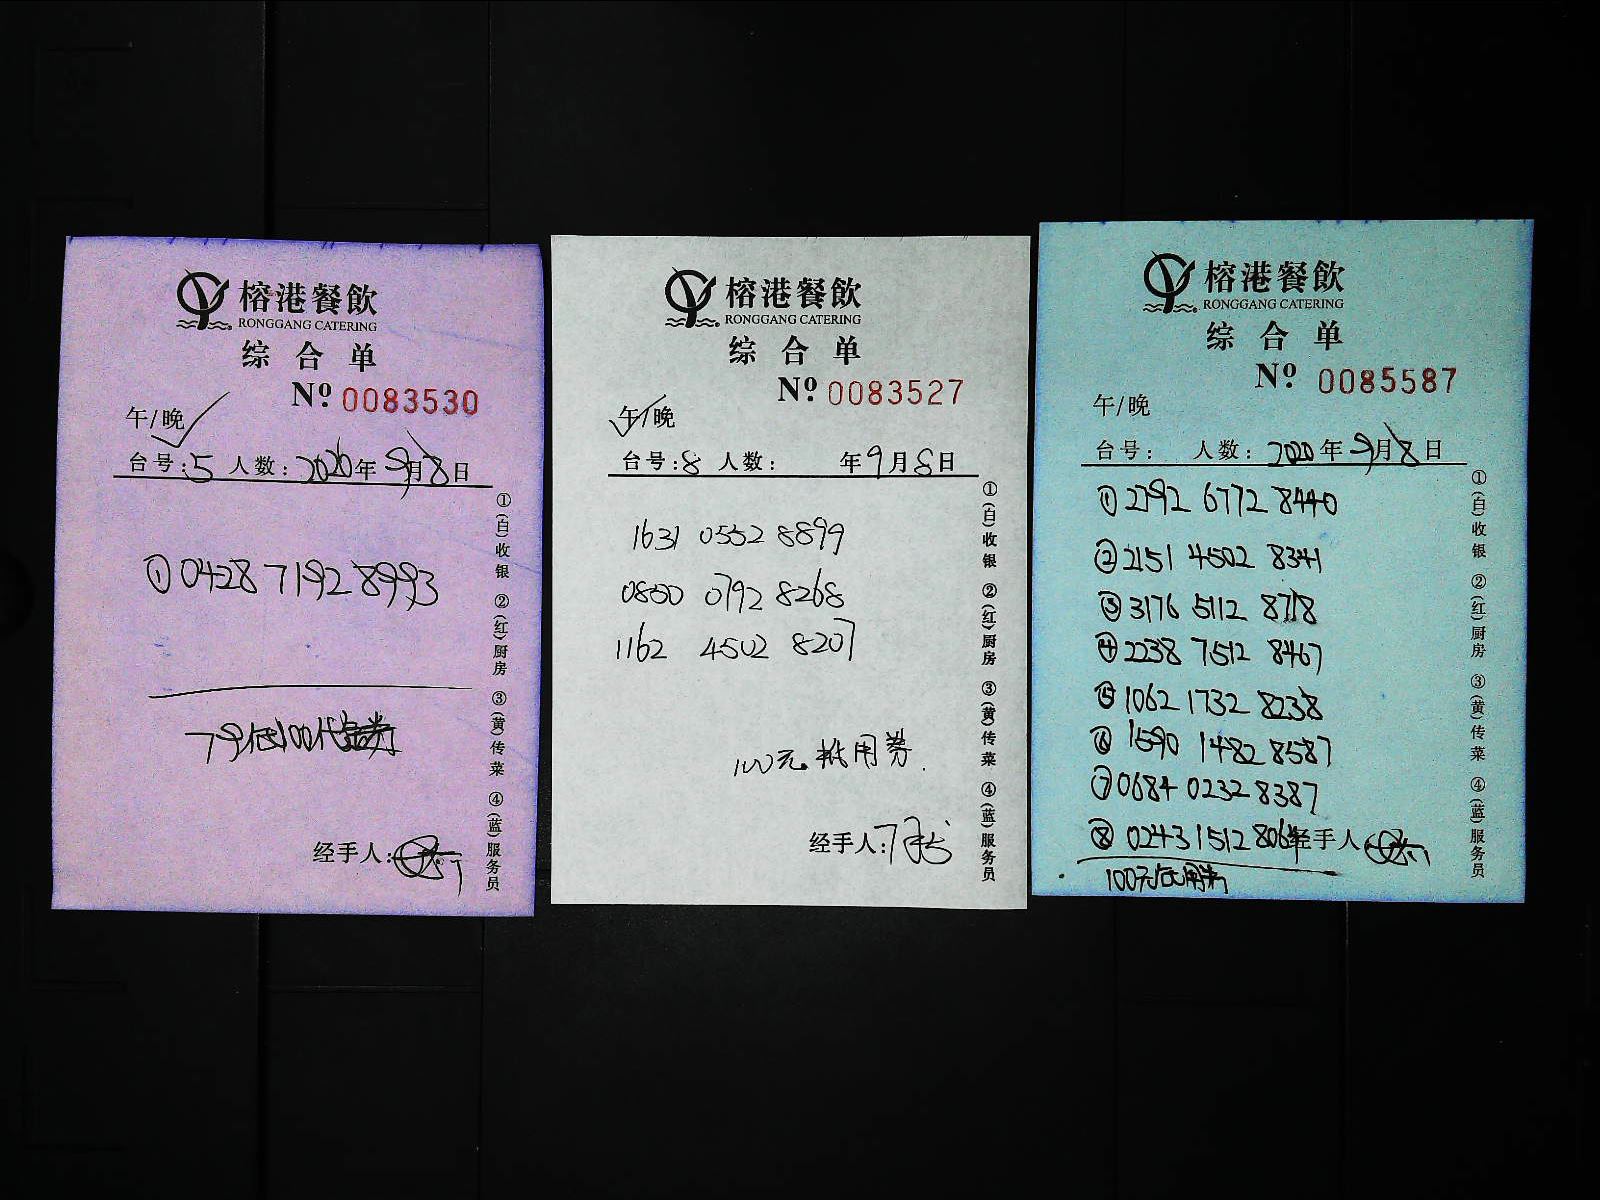 榕港餐飲
RONGGANG CATERING
综合单
Nº 0083530
午/晚
台号:5 人数: 2020年9月8日
① 0428 7192 8993
100代
经手人:
①(白)收银 ②(红)厨房 ③(黄)传菜 ④(蓝)服务员
榕港餐飲
RONGGANG CATERING
综合单
Nº 0083527
午/晚
台号:8 人数: 年9月8日
1631 0552 8899
0850 0792 8268
1162 4502 8207
100元抵用券
经手人:
①(白)收银 ②(红)厨房 ③(黄)传菜 ④(蓝)服务员
榕港餐飲
RONGGANG CATERING
综合单
Nº 0085587
午/晚
台号: 人数: 2020年9月8日
① 2792 6772 8440
② 2151 4502 8341
③ 3176 5112 8718
④ 2238 7512 8467
⑤ 1062 1732 8238
⑥ 1590 1482 8587
⑦ 0684 0232 8387
⑧ 0243 1512 8064
经手人
100元抵用券
①(白)收银 ②(红)厨房 ③(黄)传菜 ④(蓝)服务员